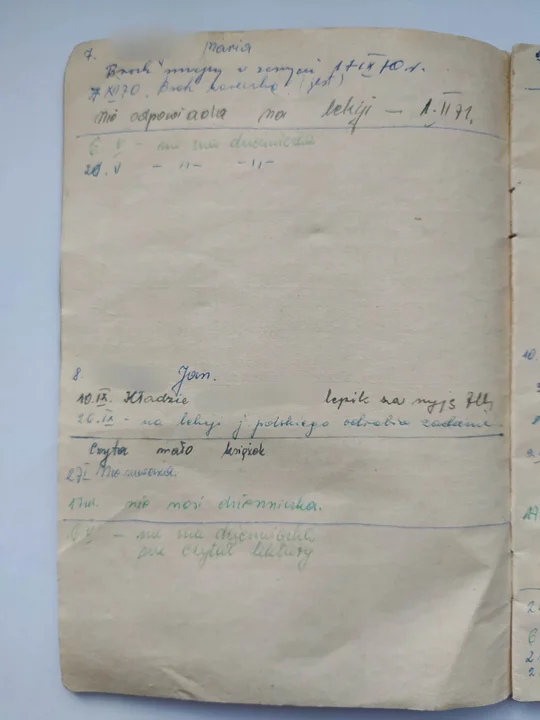 7. Maria
"Brak" w zeszycie 17 IX 70 r.
7 XI 70. Brak zeszytu (jest)
Nie odpowiada na lekcji — 1. II 71.
6 V - nie ma dzienniczka
20. V - „ - - „ -
8. Jan.
10. IX. Kładzie lepik na
26. IX - na lekcji j polskiego odrabia zadanie
Czyta mało książek
27 I Nie uważa.
nie nosi dzienniczka.
6 V - nie ma dzienniczka
nie czytał lektury